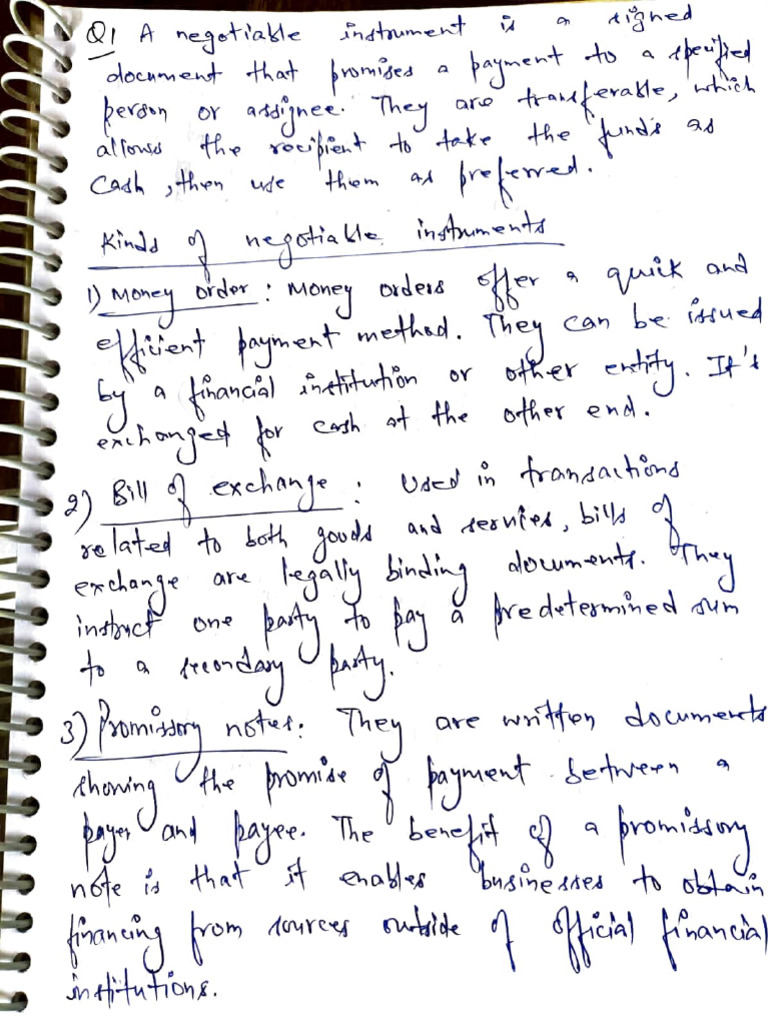 Q1 A negotiable instrument is a signed
document that promises a payment to a specified
person or assignee. They are transferable, which
allows the recipient to take the funds as
cash, then use them as preferred.
Kinds of negotiable instruments
1) Money order : Money orders offer a quick and
efficient payment method. They can be issued
by a financial institution or other entity. It's
exchanged for cash at the other end.
2) Bill of exchange : Used in transactions
related to both goods and services, bills of
exchange are legally binding documents. They
instruct one party to pay a predetermined sum
to a secondary party.
3) Promissory notes: They are written documents
showing the promise of payment between a
payer and payee. The benefit of a promissory
note is that it enables businesses to obtain
financing from sources outside of official financial
institutions.